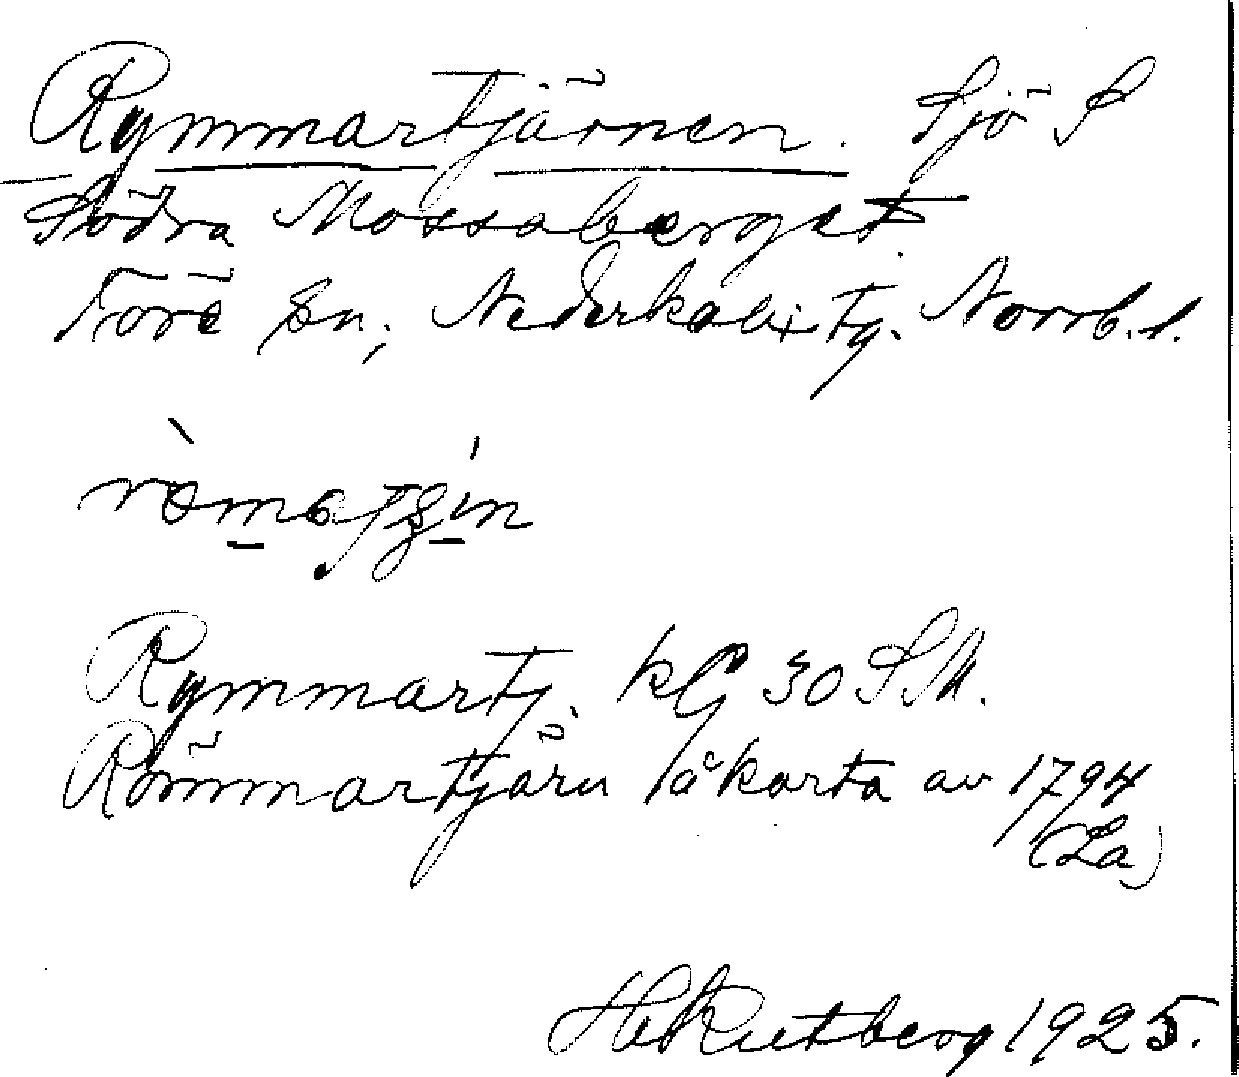 Rymmartjärnen. Sjö S
Södra Mossaberget.
Töre sn, Nederkalix tg. Norrb. l.
Rymmartj. kbl 30 S.M.
Römmartjärn låkarta av 1794
(La)
H. Rutberg 1925.